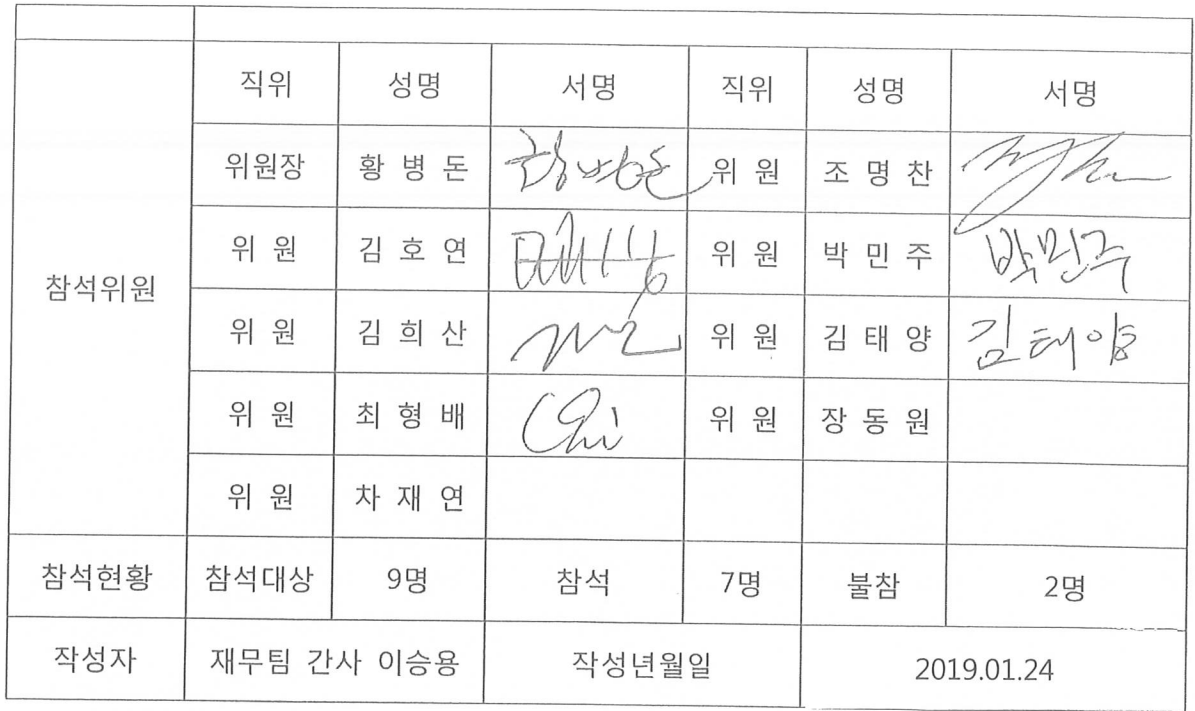 직위 성명 서명 직위 성명 서명
위원장 황 병 돈 황병돈 위 원 조 명 찬
위 원 김 호 연 위 원 박 민 주 박민주
참석위원
위 원 김 희 산 위 원 김 태 양 김태양
위 원 최 형 배 Choi 위 원 장 동 원
위 원 차 재 연
참석현황 참석대상 9명 참석 7명 불참 2명
작성자 재무팀 간사 이승용 작성년월일 2019.01.24